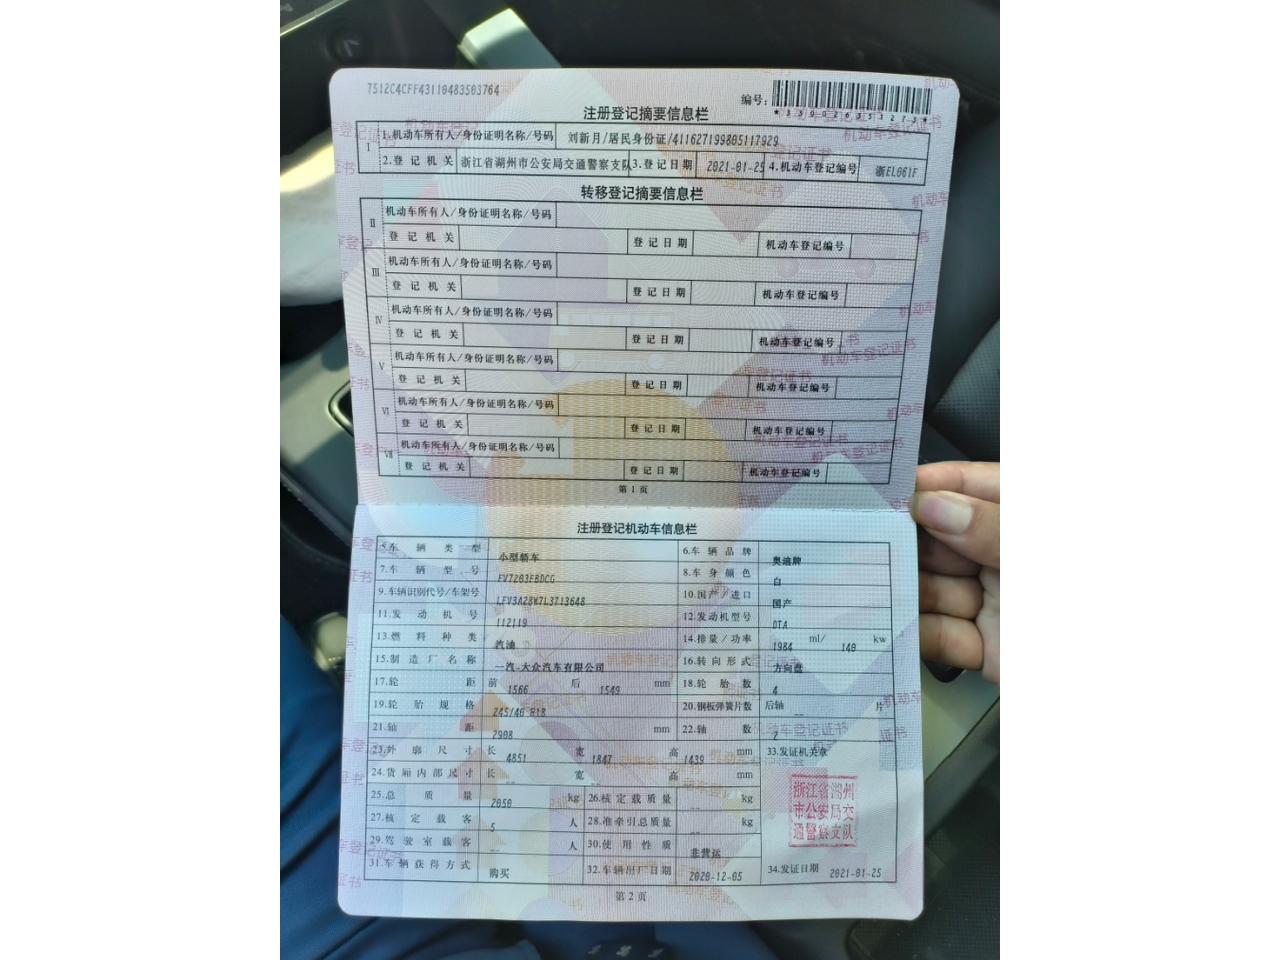 7512C4CFF43110483503764
编号:
*330026351273*
注册登记摘要信息栏
I 1.机动车所有人/身份证明名称/号码 刘新月/居民身份证/411627199805117929
2.登记机关 浙江省湖州市公安局交通警察支队 3.登记日期 2021-01-25 4.机动车登记编号 浙EL061F
转移登记摘要信息栏
II 机动车所有人/身份证明名称/号码
登记机关 登记日期 机动车登记编号
III 机动车所有人/身份证明名称/号码
登记机关 登记日期 机动车登记编号
IV 机动车所有人/身份证明名称/号码
登记机关 登记日期 机动车登记编号
V 机动车所有人/身份证明名称/号码
登记机关 登记日期 机动车登记编号
VI 机动车所有人/身份证明名称/号码
登记机关 登记日期 机动车登记编号
VII 机动车所有人/身份证明名称/号码
登记机关 登记日期 机动车登记编号
第1页
注册登记机动车信息栏
5.车辆类型 小型轿车 6.车辆品牌 奥迪牌
7.车辆型号 FV7203FBDCG 8.车身颜色 白
9.车辆识别代号/车架号 LFV3A28W7L3713648 10.国产/进口 国产
11.发动机号 112119 12.发动机型号 DTA
13.燃料种类 汽油 14.排量/功率 1984 ml/ 140 kw
15.制造厂名称 一汽-大众汽车有限公司 16.转向形式 方向盘
17.轮距 前 1566 后 1549 mm 18.轮胎数 4
19.轮胎规格 245/40 R18 20.钢板弹簧片数 后轴 -- 片
21.轴距 2908 mm 22.轴数 2
23.外廓尺寸 长 4851 宽 1847 高 1439 mm 33.发证机关章
24.货厢内部尺寸 长 -- 宽 -- 高 -- mm
25.总质量 2050 kg 26.核定载质量 -- kg
27.核定载客 5 人 28.准牵引总质量 -- kg
29.驾驶室载客 -- 人 30.使用性质 非营运
31.车辆获得方式 购买 32.车辆出厂日期 2020-12-05 34.发证日期 2021-01-25
浙江省湖州
市公安局交
通警察支队
第2页